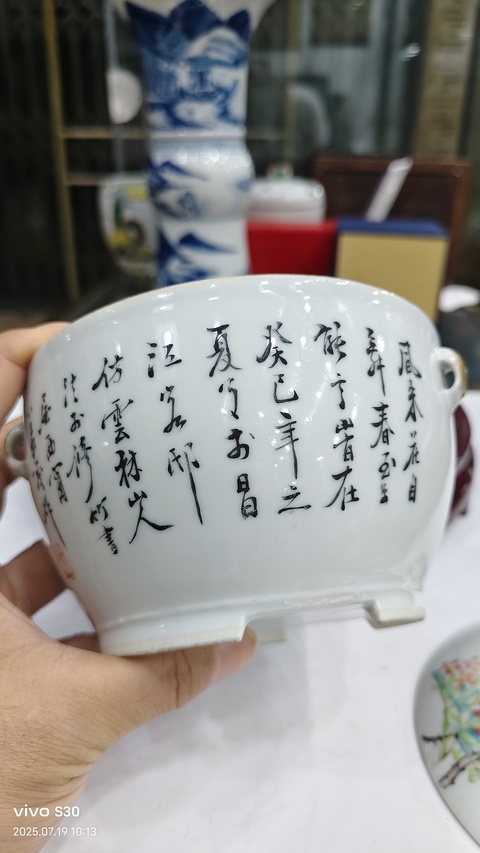 風來花自
舞春至鳥
能言時在
癸巳年之
夏月於昌
江客邸
仿雲林山人
法於修
vivo S30
2025.07.19 10:13